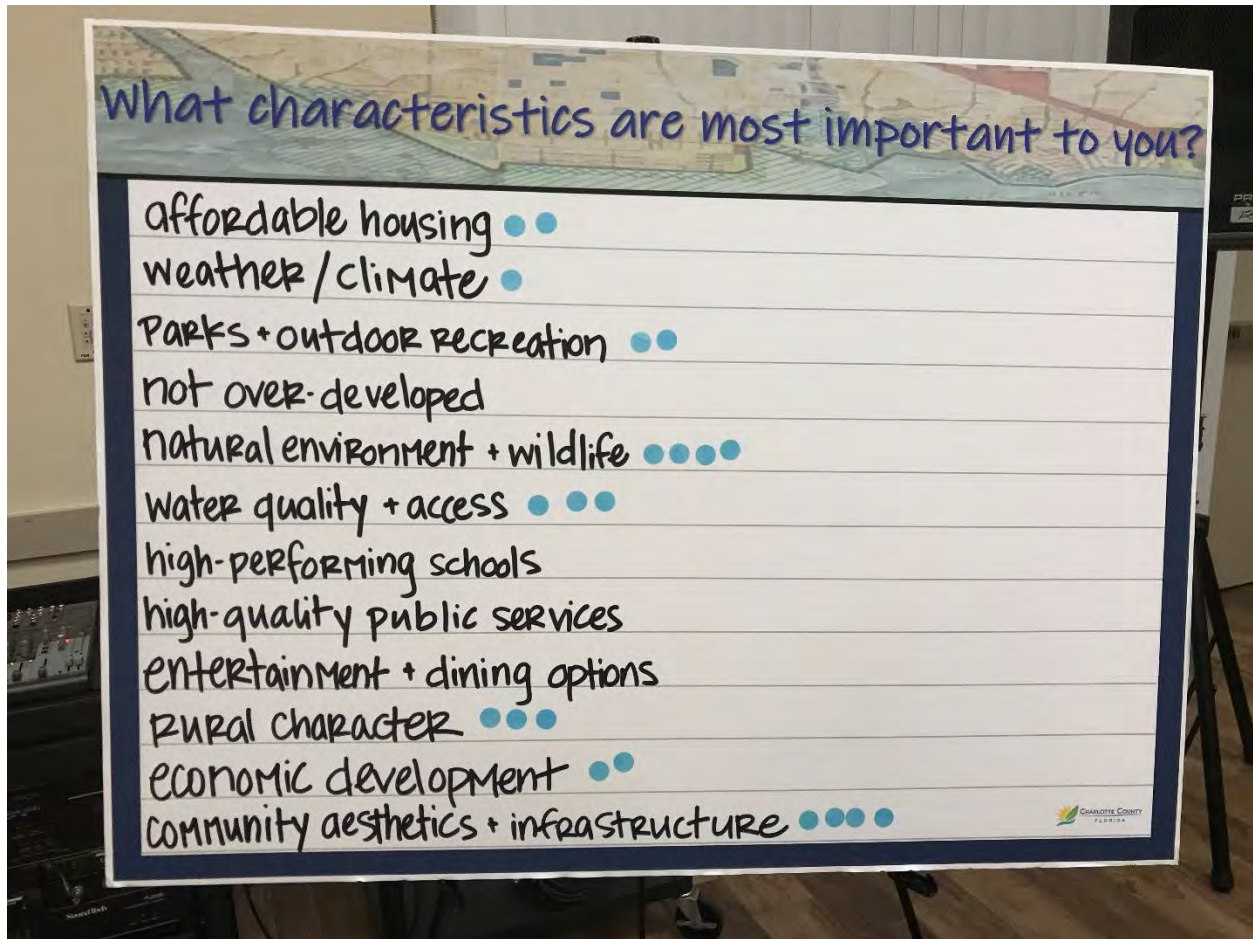 What characteristics are most important to you?
affordable housing
weather/climate
Parks + outdoor recreation
not over-developed
natural environment + wildlife
water quality + access
high-performing schools
high-quality public services
entertainment + dining options
rural character
economic development
community aesthetics + infrastructure
CHARLOTTE COUNTY
FLORIDA
SoundTech